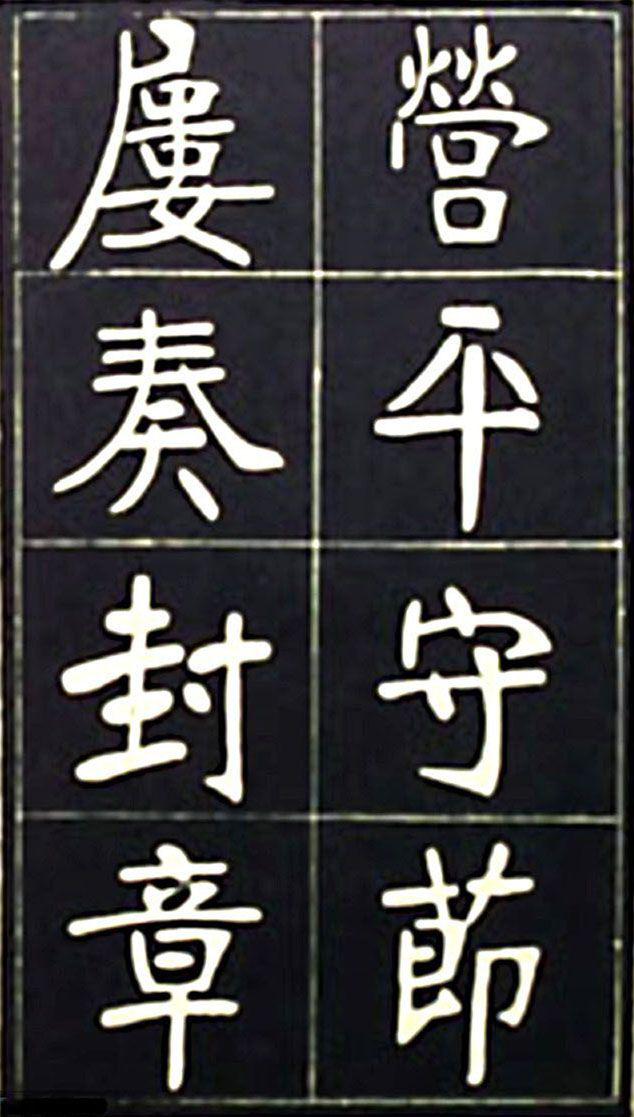 營平守節
屢奏封章